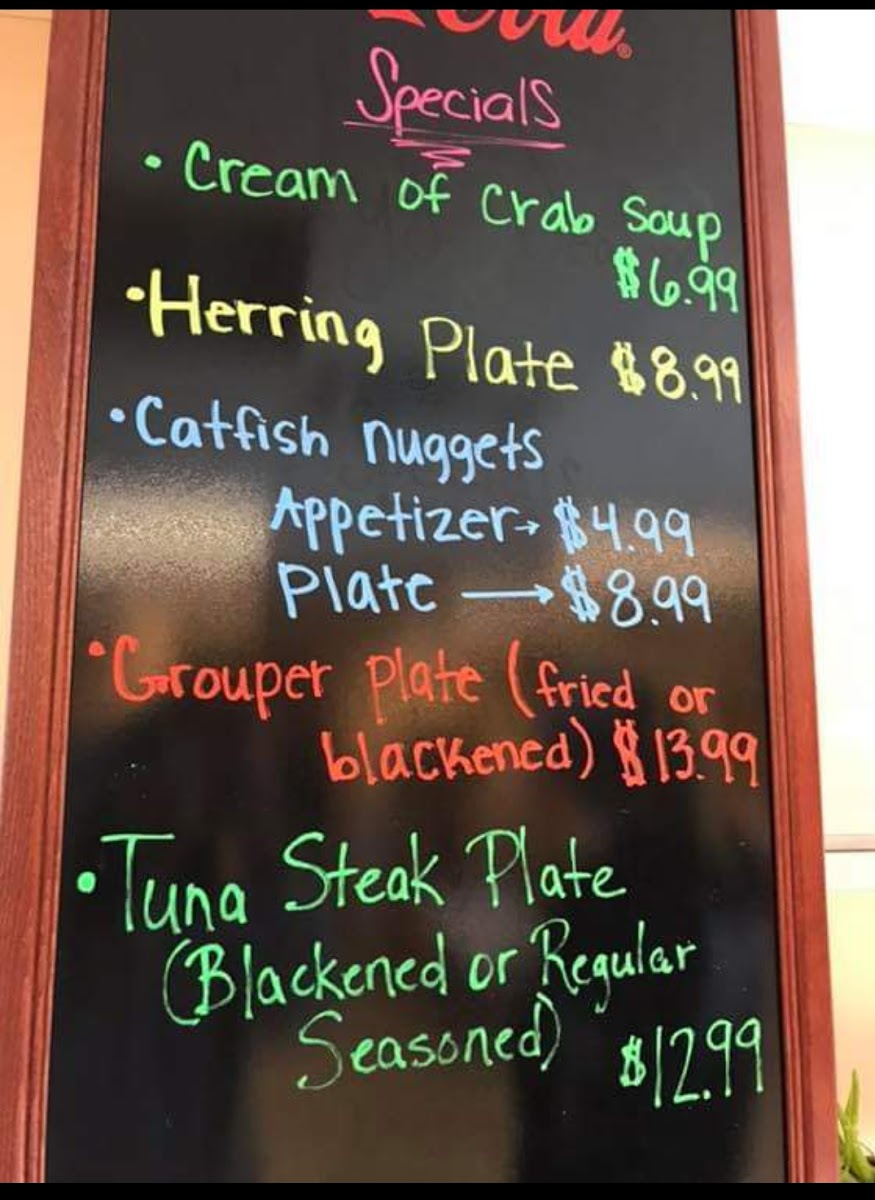 Specials
• Cream of Crab Soup
$6.99
• Herring Plate $8.99
• Catfish nuggets
Appetizer→ $4.99
Plate → $8.99
• Grouper plate (fried or
blackened) $13.99
• Tuna Steak Plate
(Blackened or Regular
Seasoned) $12.99